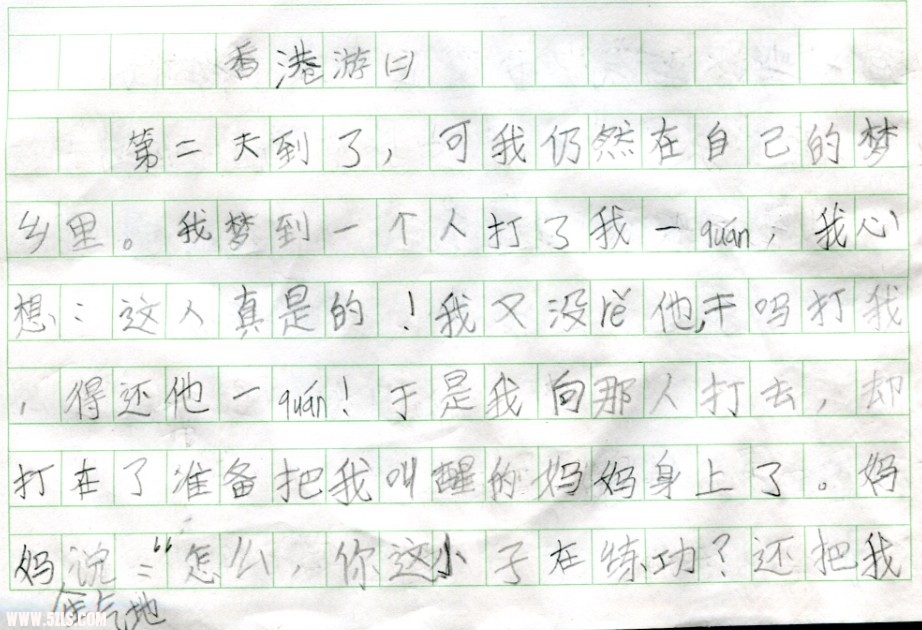 香港游(二)
第二天到了，可我仍然在自己的梦
乡里。我梦到一个人打了我一quán，我心
想：这人真是的！我又没rě他，干吗打我
，得还他一quán！于是我向那人打去，却
打在了准备把我叫醒的妈妈身上了。妈
妈说：“怎么，你这小子在练功？还把我
生气地
WWW.5ZLS.COM